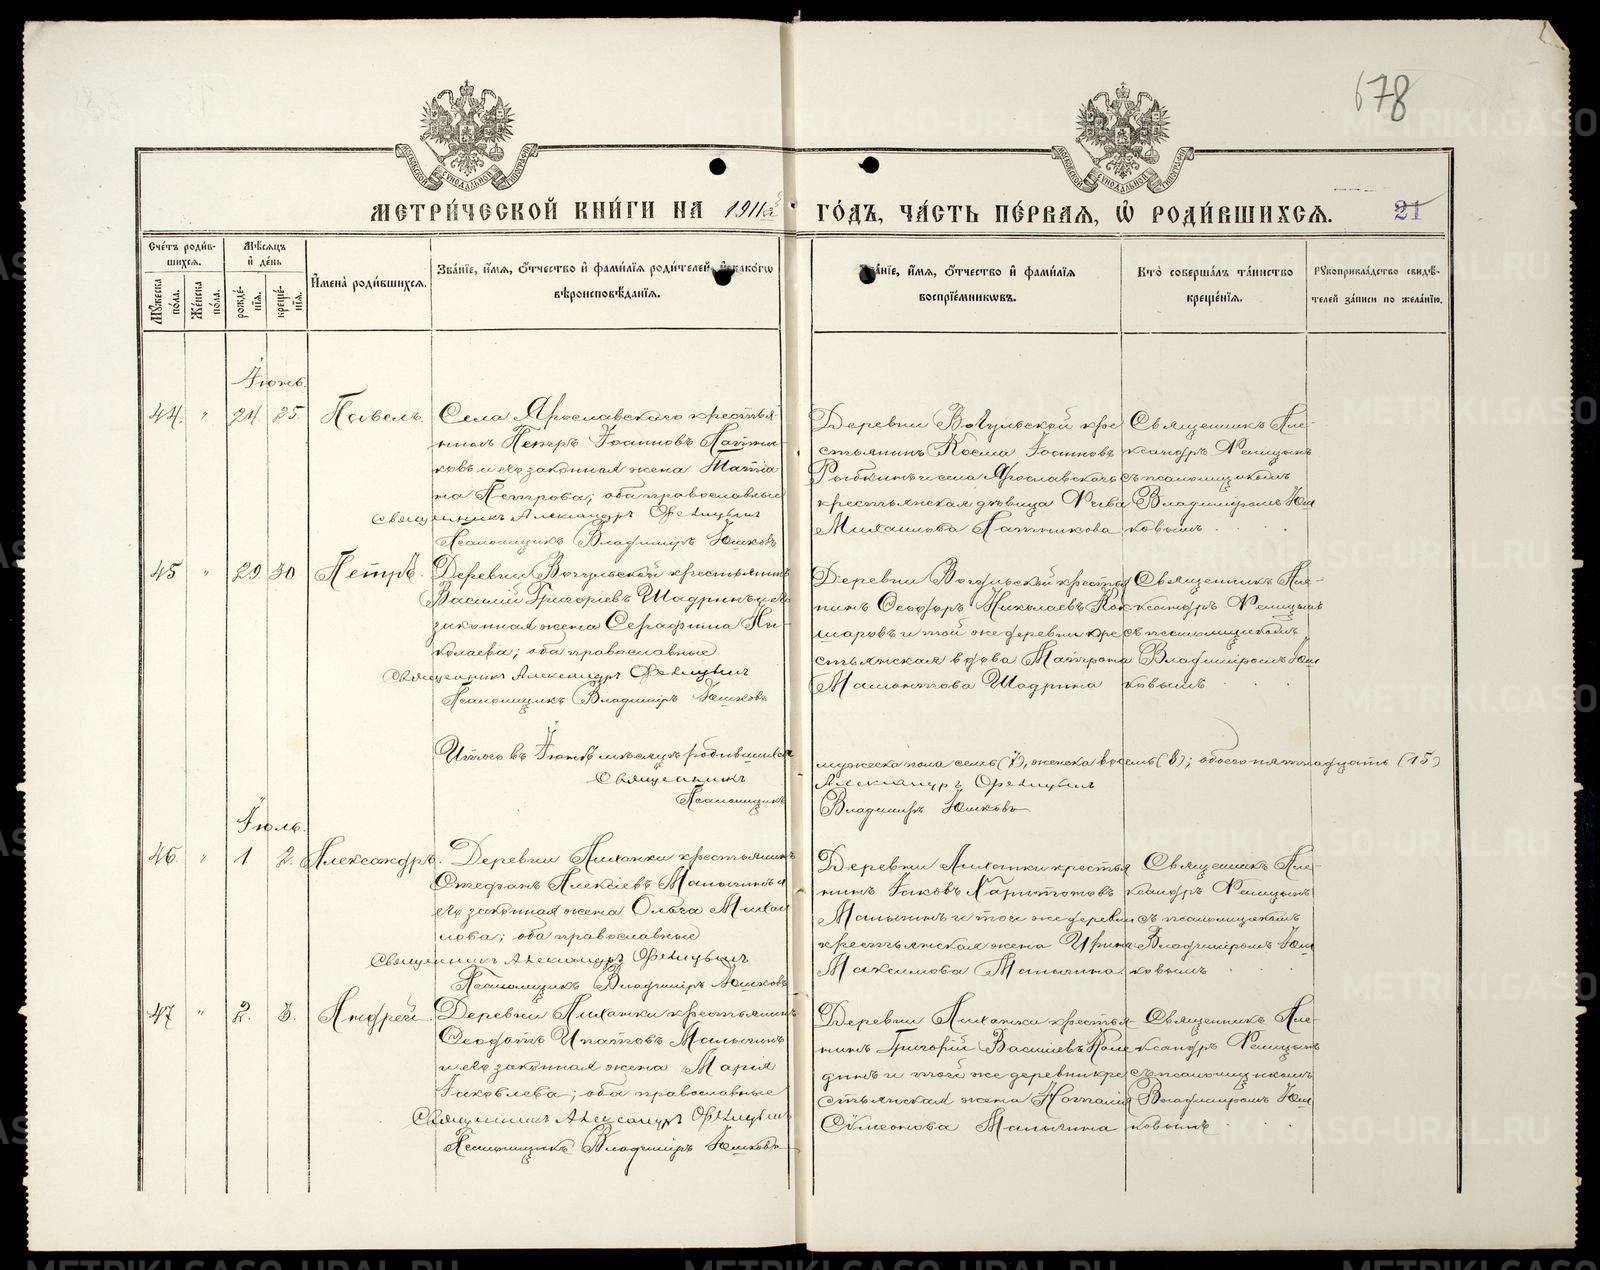 678
МЕТРИ́ЧЕСКОЙ КНИ́ГИ НА 1911й ГО́ДЪ, ЧА́СТЬ ПЕ́РВАЯ, Ѡ РОДИ́ВШИХСЯ.
21
Сче́тъ роди́вшихся.
Мѣ́сяцъ и де́нь
Му́жеска по́ла.
Же́нска по́ла.
рожде́нїя.
креще́нїя.
И҆мена̀ роди́вшихся.
Зва́нїе, и҆́мя, ѻ҆́тчество и҆ фами́лїя роди́телей, и҆ како́гѡ
вѣроисповѣ́данїя.
Зва́нїе, и҆́мя, ѻ҆́тчество и҆ фами́лїя
воспрїе́мникѡвъ.
Кто̀ соверша́лъ та́инство
креще́нїя.
Рукоприкла́дство свидѣ́-
телей за́писи по жела́нїю.
Іюнь.
44. " 24. 25. Павелъ.
Села Ярославскаго крестья-
нинъ Петръ Іоанновъ Патни-
ковъ и его законная жена Татiа-
на Петрова; оба православные
Священникъ Александръ Ѳелицынъ
Псаломщикъ Владимiръ Юшковъ
Деревни Вогульской кре
стьянинъ Косма Іоанновъ
Рыбкинъ и села Ярославскаго
крестьянская дѣвица
Михаилова Патникова
Священникъ Але-
ксандръ Фелицынъ
съ псаломщикомъ
Владимiромъ Юш
ковымъ
45 " 29 30 Петръ.
Деревни Вогульской крестьянинъ
Василiй Григорiевъ Шадринъ и его
законная жена Серафима Ни-
колаева; оба православные
Священникъ Александръ Ѳелицынъ
Псаломщикъ Владимiръ Юшковъ
Деревни Вогульской крестья
нинъ Ѳеодоръ Николаевъ Кок
шаровъ и той же деревни кре
стьянская вдова Матрона
Мамонтова Шадрина
Священникъ Але-
ксандръ Фелицынъ
съ псаломщикомъ
Владимiромъ Юш
ковымъ
Итого въ Іюнѣ мѣсяцѣ родившихся
мужеска пола семь (7), женска восемь (8); обоего пятнадцать (15)
Священникъ Александръ Ѳелицынъ
Псаломщикъ Владимiръ Юшковъ
Іюль.
46 " 1 2. Александръ.
Деревни Липатки крестьянинъ
Стефанъ Алексiевъ Маньгинъ и
его законная жена Ольга Михаи
лова; оба православные
Священникъ Александръ Ѳелицынъ
Псаломщикъ Владимiръ Юшковъ
Деревни Липатки крестья
нинъ Іаковъ Харитоновъ
Маньгинъ и той же деревни
крестьянская жена Ирина
Максимова Маньгина
Священникъ Але-
ксандръ Фелицынъ
съ псаломщикомъ
Владимiромъ Юш
ковымъ
47 " 2. 3. Андрей.
Деревни Липатки крестьянинъ
Ѳеодотъ Ипатовъ Маньгинъ
и его законная жена Марiя
Іаковлева; оба православные
Священникъ Александръ Ѳелицынъ
Псаломщикъ Владимiръ Юшковъ
Деревни Липатки крестья-
нинъ Григорiй Василiевъ
и той же деревни кре
стьянская жена Наталiя
Сѵмеонова Маньгина
Священникъ Але-
ксандръ Фелицынъ
съ псаломщикомъ
Владимiромъ Юш
ковымъ
METRIKI.GASO-URAL.RU